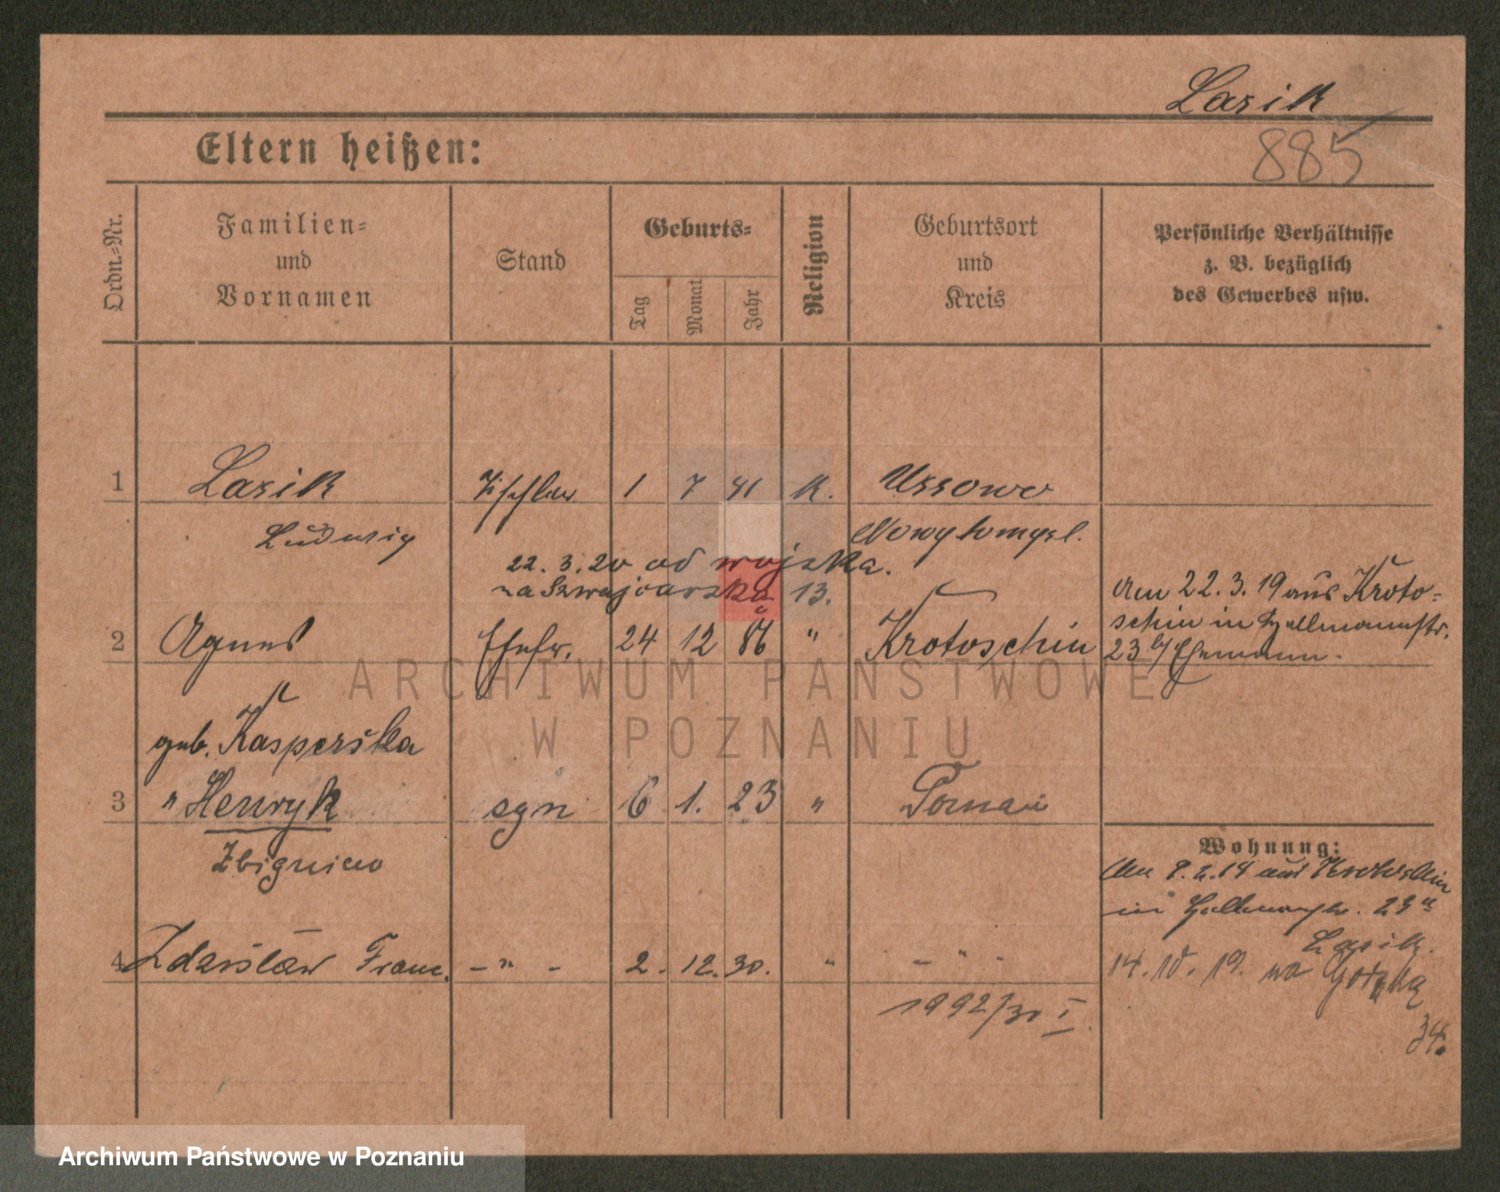 Lasik
885
Eltern heißen:
Ordn.-Nr.
Familien-
und
Vornamen
Stand
Geburts-
Tag
Monat
Jahr
Religion
Geburtsort
und
Kreis
Persönliche Verhältnisse
z. B. bezüglich
des Gewerbes usw.
1 Lasik Tischler 1 7 91 K. Ussowo
Ludwig Nowytomysl.
22. 3. 20 od wojska.
na Szwajcarską 13.
2 Agnes Ehefr. 24 12 " Krotoschin
Am 22. 3. 19 aus Kroto-
schin in
23 b/ Ehemann.
geb. Kasperska
3 " Henryk syn 6 1. 23 " Poznań
Zbigniew
Wohnung:
in 23
Lasik.
4 Zdzisław Franc. - " - 2. 12. 30. " - " -
14. 10. 19. na Górną
34.
1992/30 I.
ARCHIWUM PAŃSTWOWE
W POZNANIU
Archiwum Państwowe w Poznaniu